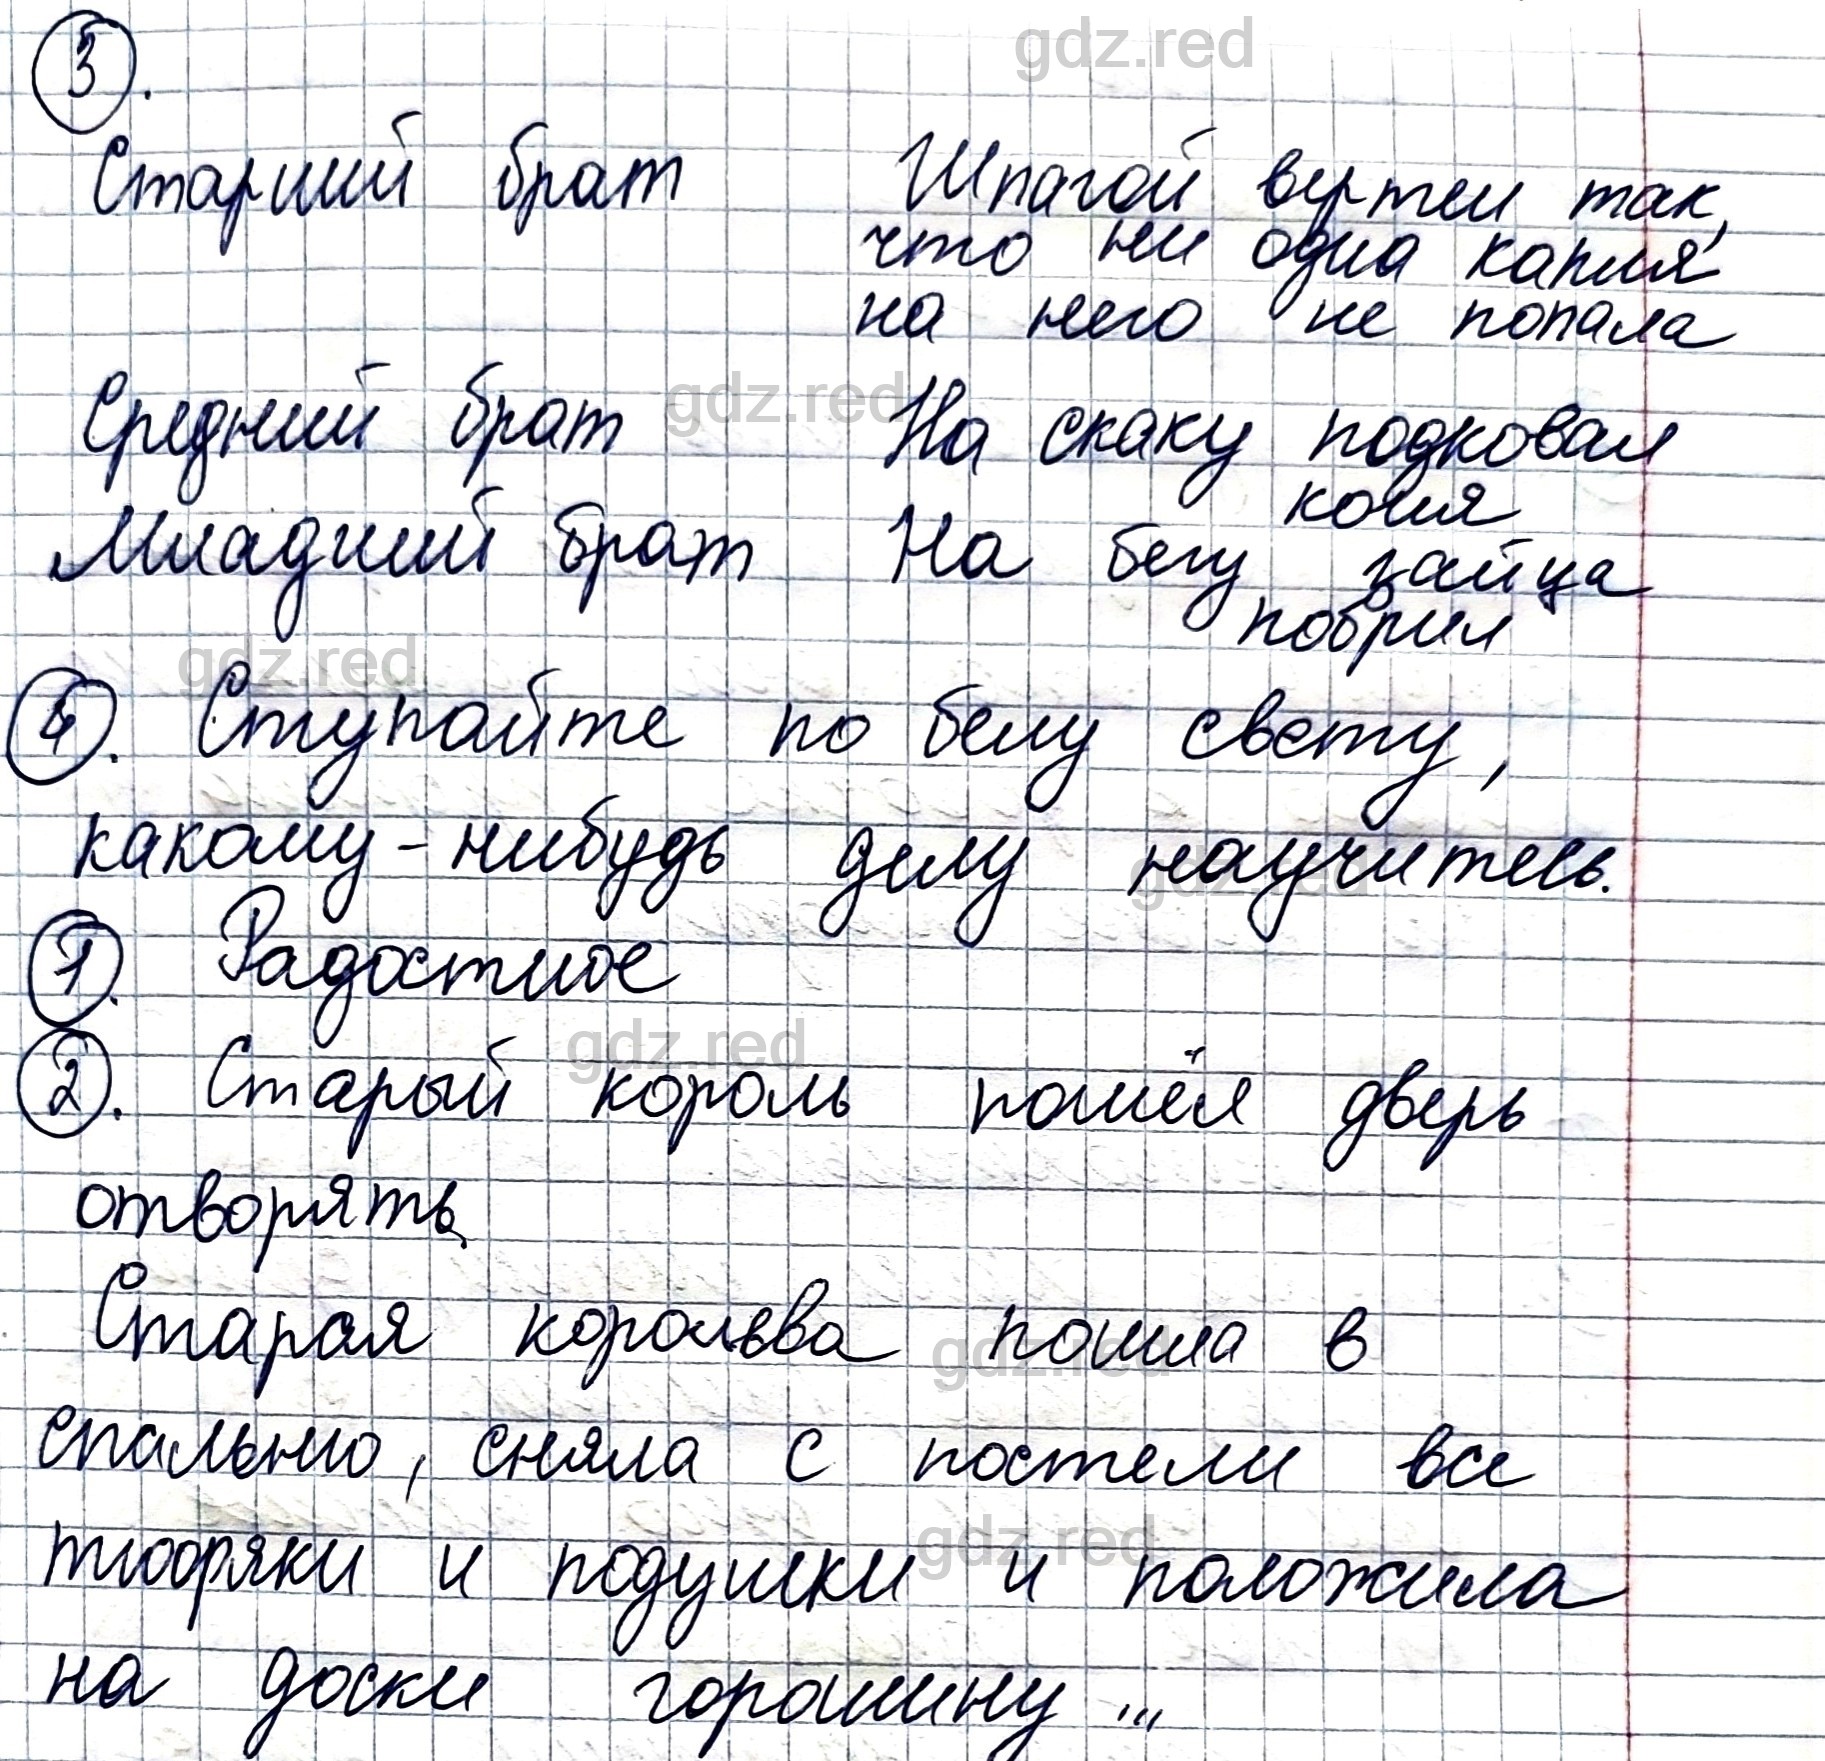 3.
Старший брат Шпагой вертел так,
что ни одна капля
на него не попала
Средний брат На скаку подковал
коня
Младший брат На бегу зайца
побрил
4. Ступайте по белу свету,
какому-нибудь делу научитесь.
1. Радостное
2. Старый король пошёл дверь
отворять.
Старая королева пошла в
спальню, сняла с постели все
тюфяки и подушки и положила
на доски горошину...
gdz.red
gdz.red
gdz.red
gdz.red
gdz.red
gdz.red
gdz.red